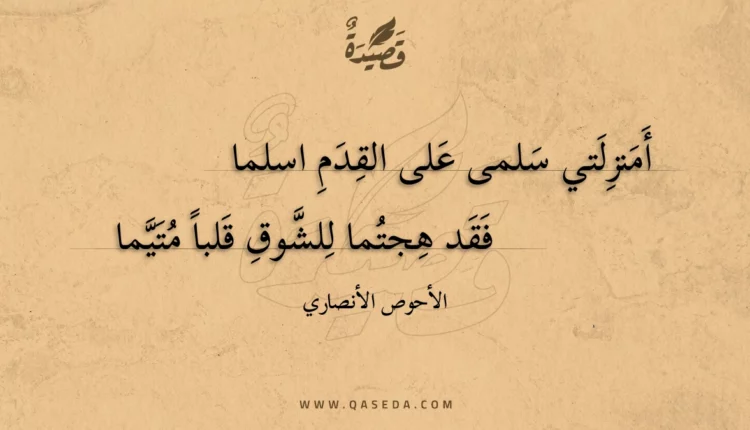 قَصِيدَةٌ
أَمَنزِلَتي سَلمى عَلى القِدَمِ اسلما
فَقَد هِجتُما لِلشَّوقِ قَلباً مُتَيَّما
الأحوص الأنصاري
WWW.QASEDA.COM